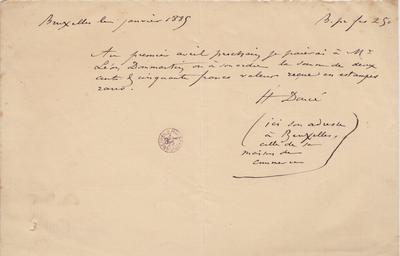 Bruxelles le janvier 1885 B. p. frs 250
Au premier avril prochain je paierai à Mr
Léon Dommartin ou à son ordre la somme de deux
cents & cinquante francs valeur reçue en estampes
rares.
H Doucé
(ici son adresse
à Bruxelles,
celle de sa
maison de
commerce